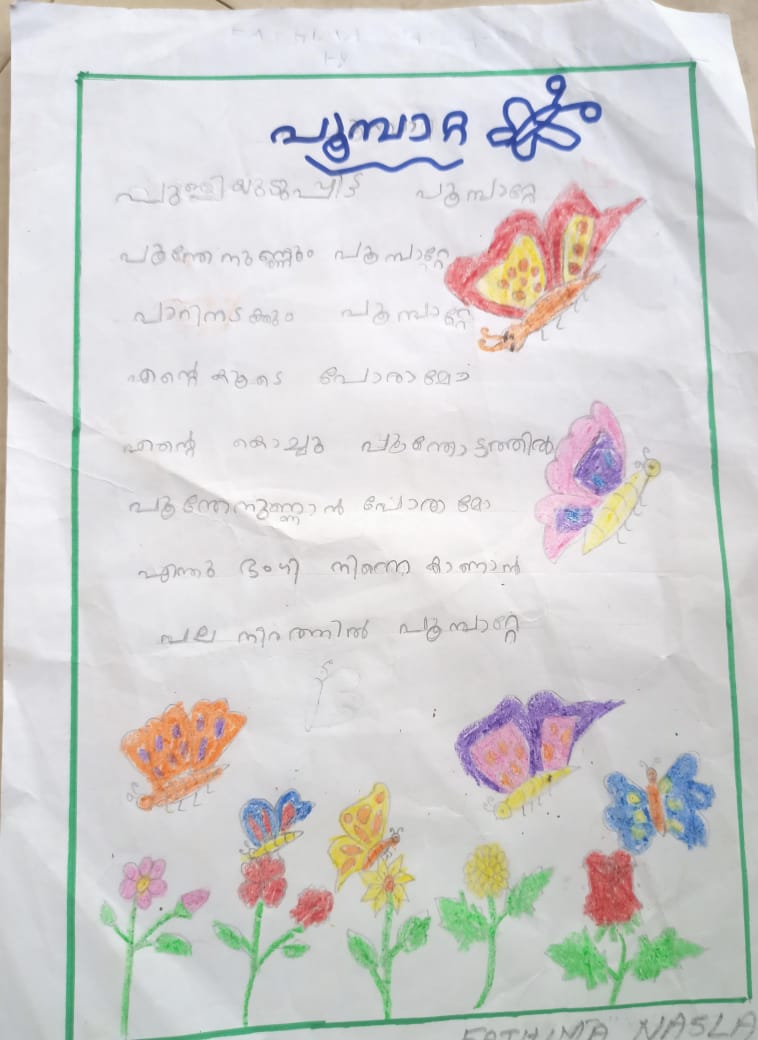 പൂമ്പാറ്റ
പുള്ളിയുടുപ്പിട്ട പൂമ്പാറ്റേ
പൂന്തേനുണ്ണും പൂമ്പാറ്റേ
പാറിനടക്കും പൂമ്പാറ്റേ
എന്റെ കൂടെ പോരാമോ
എന്റെ കൊച്ചു പൂന്തോട്ടത്തിൽ
പൂന്തേനുണ്ണാൻ പോരാമോ
എന്തു ഭംഗി നിന്നെ കാണാൻ
പല നിറത്തിൽ പൂമ്പാറ്റേ
FATHIMA NASLA